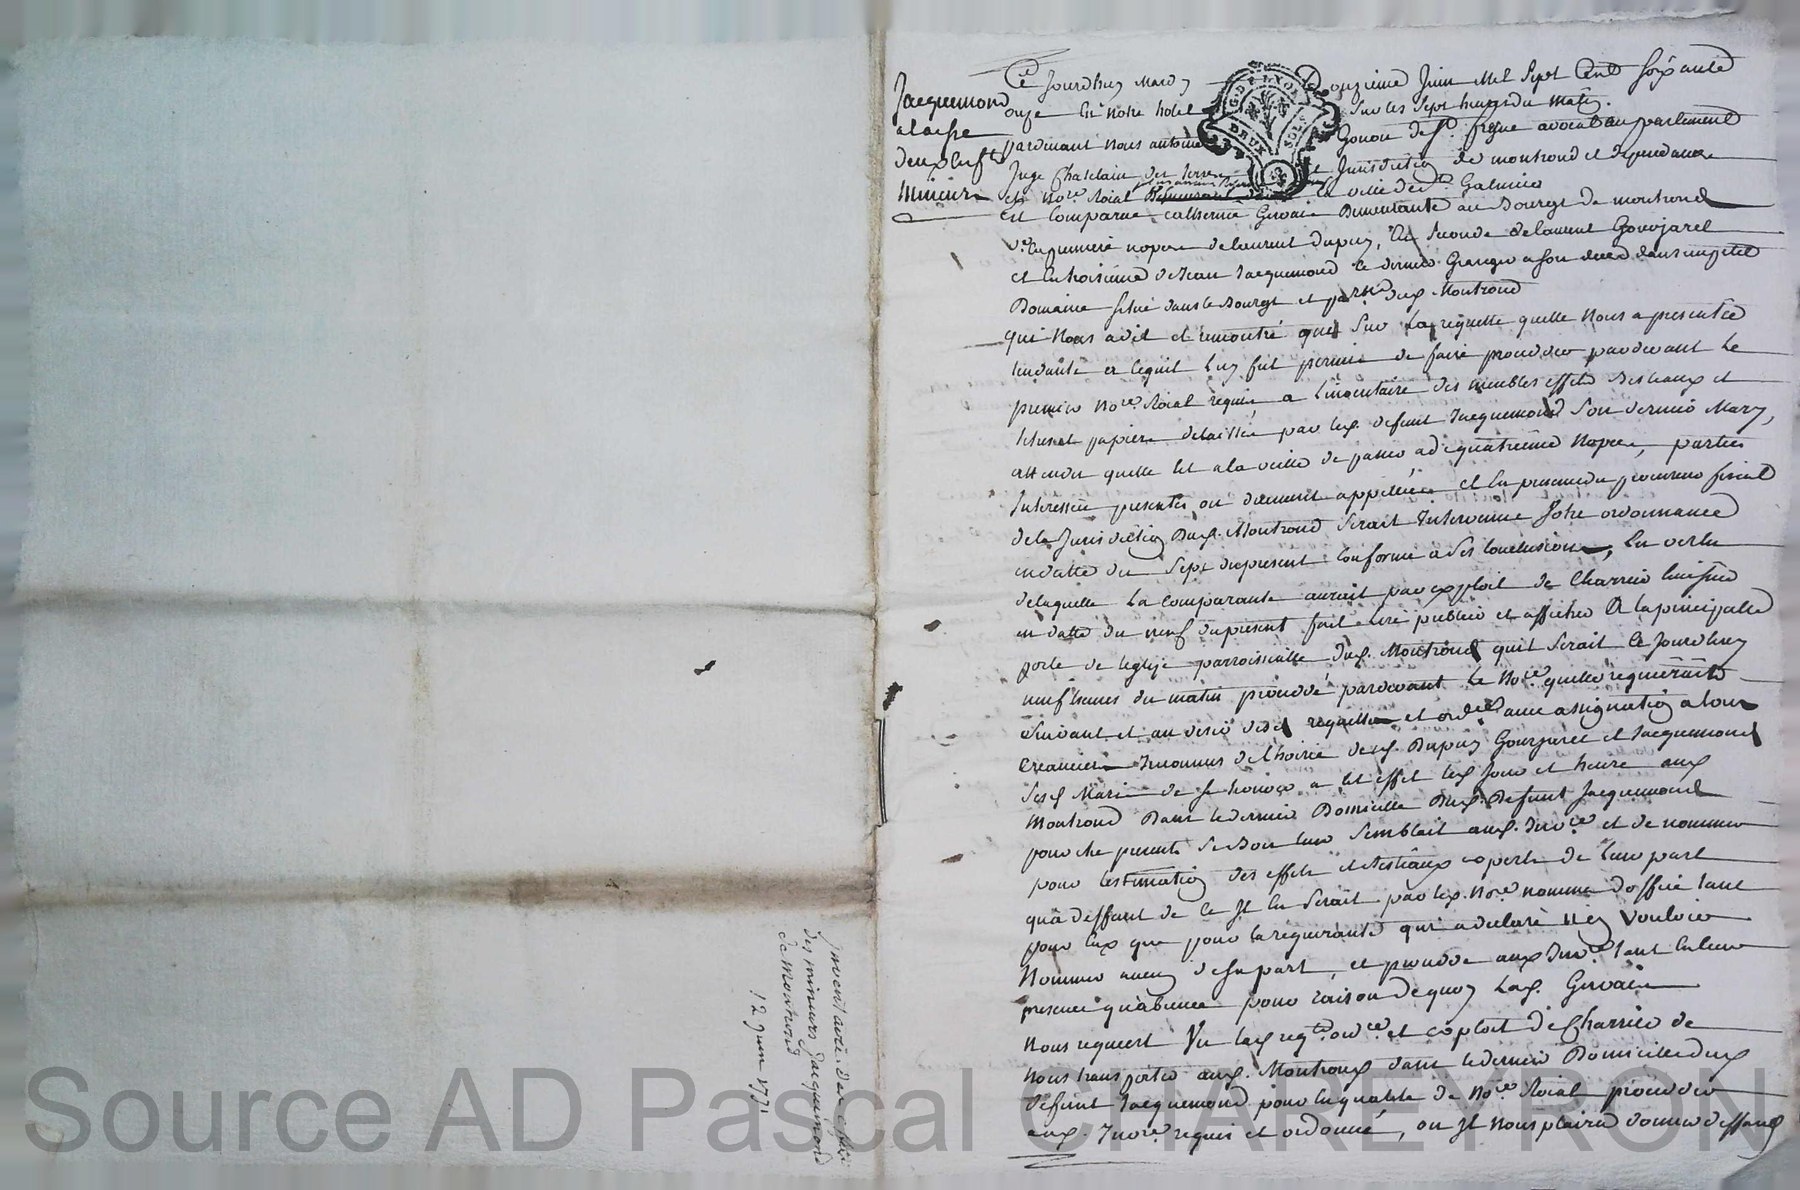 Inventaire des effets
des mineurs Jacquemond
de Montrond
12 juin 1771
Jacquemond
a laisse
deux enfts
mineurs
G. DE LYON
DEUX SOLS
Ce Jourdhuy Mardy Douzieme Juin Mil Sept Cent soixante
onze En notre hotel sur les Sept heures du matin
pardevant nous antoine Gonon de St. fregne avocat en parlement
Juge Chatelain des terres et Jurisdiction de montrond et dependances
et nore. Roial en la ville de St. Galmier
Est Comparue catherine Gervais Demeurante au Bourgt de montrond
Ve. en premiere nopces de laurent dupuy, En seconde de laurent Gourjaret
et En troisieme de Jean Jacquemond le dernier Granger a son deces dans un petit
Domaine situé dans le Bourgt et parsse. dud. Montrond
qui Nous a dit et remontré que sur La requette quelle Nous a presentée
tendante a ce quil Luy fut permis de faire proceder pardevant le
premier nore. Roial requis a L'inventaire des meubles effets Bestiaux et
titres et papiers delaissés par led. defunt Jacquemond son dernier Mary,
attendu quelle est a la veille de passer a de quatriemes Nopces, parties
Interessées presentes ou duement appellées et En presence du procureur fiscal
de la Jurisdiction dud. Montrond serait Intervenue notre ordonnance
en datte du Sept du present Conforme a ses Conclusions, En vertu
de laquelle La Comparante aurait par exploit de Charrier huissier
en datte du neuf du present fait Lire publier et afficher A la principalle
porte de leglise parroissialle dud. Montrond quil serait Ce Jourdhuy
neuf heures du matin procedé pardevant Le Nore. quelle requiererait
suivant et au desir desd. requette et ordce. avec assignation a tous
Creanciers Inconnus de Lhoirie desd. Dupuy Gourjaret et Jacquemond
sesd. Maris de se trouver a cet effet lesd. Jour et heure aud.
Montrond Dans le dernier Domicille dud. Defunt Jacquemond
pour etre presents si Bon leur semblait aud. Invre. et de nommer
pour lestimation des effets et Bestiaux experts de leur part
qu'a deffaut de ce Il en serait par led. Nore. nommé doffice tant
pour Eux que pour la requerante qui a declaré n'en Vouloir
Nommer aucun de sa part, et procedé aud. Invre. tant en leur
presence qu'absence pour raison de quoy Lad. Gervais
nous requiert Vu lesd. reqte. ordce. et exploit de Charrier de
nous transporter aud. Montrond dans le dernier Domicille dud.
defunt Jacquemond pour en qualité de Nore. Roial proceder
aud. Invre. requis et ordonné, ou Il nous plaira donner deffaut
Source AD Pascal CHAREYRON